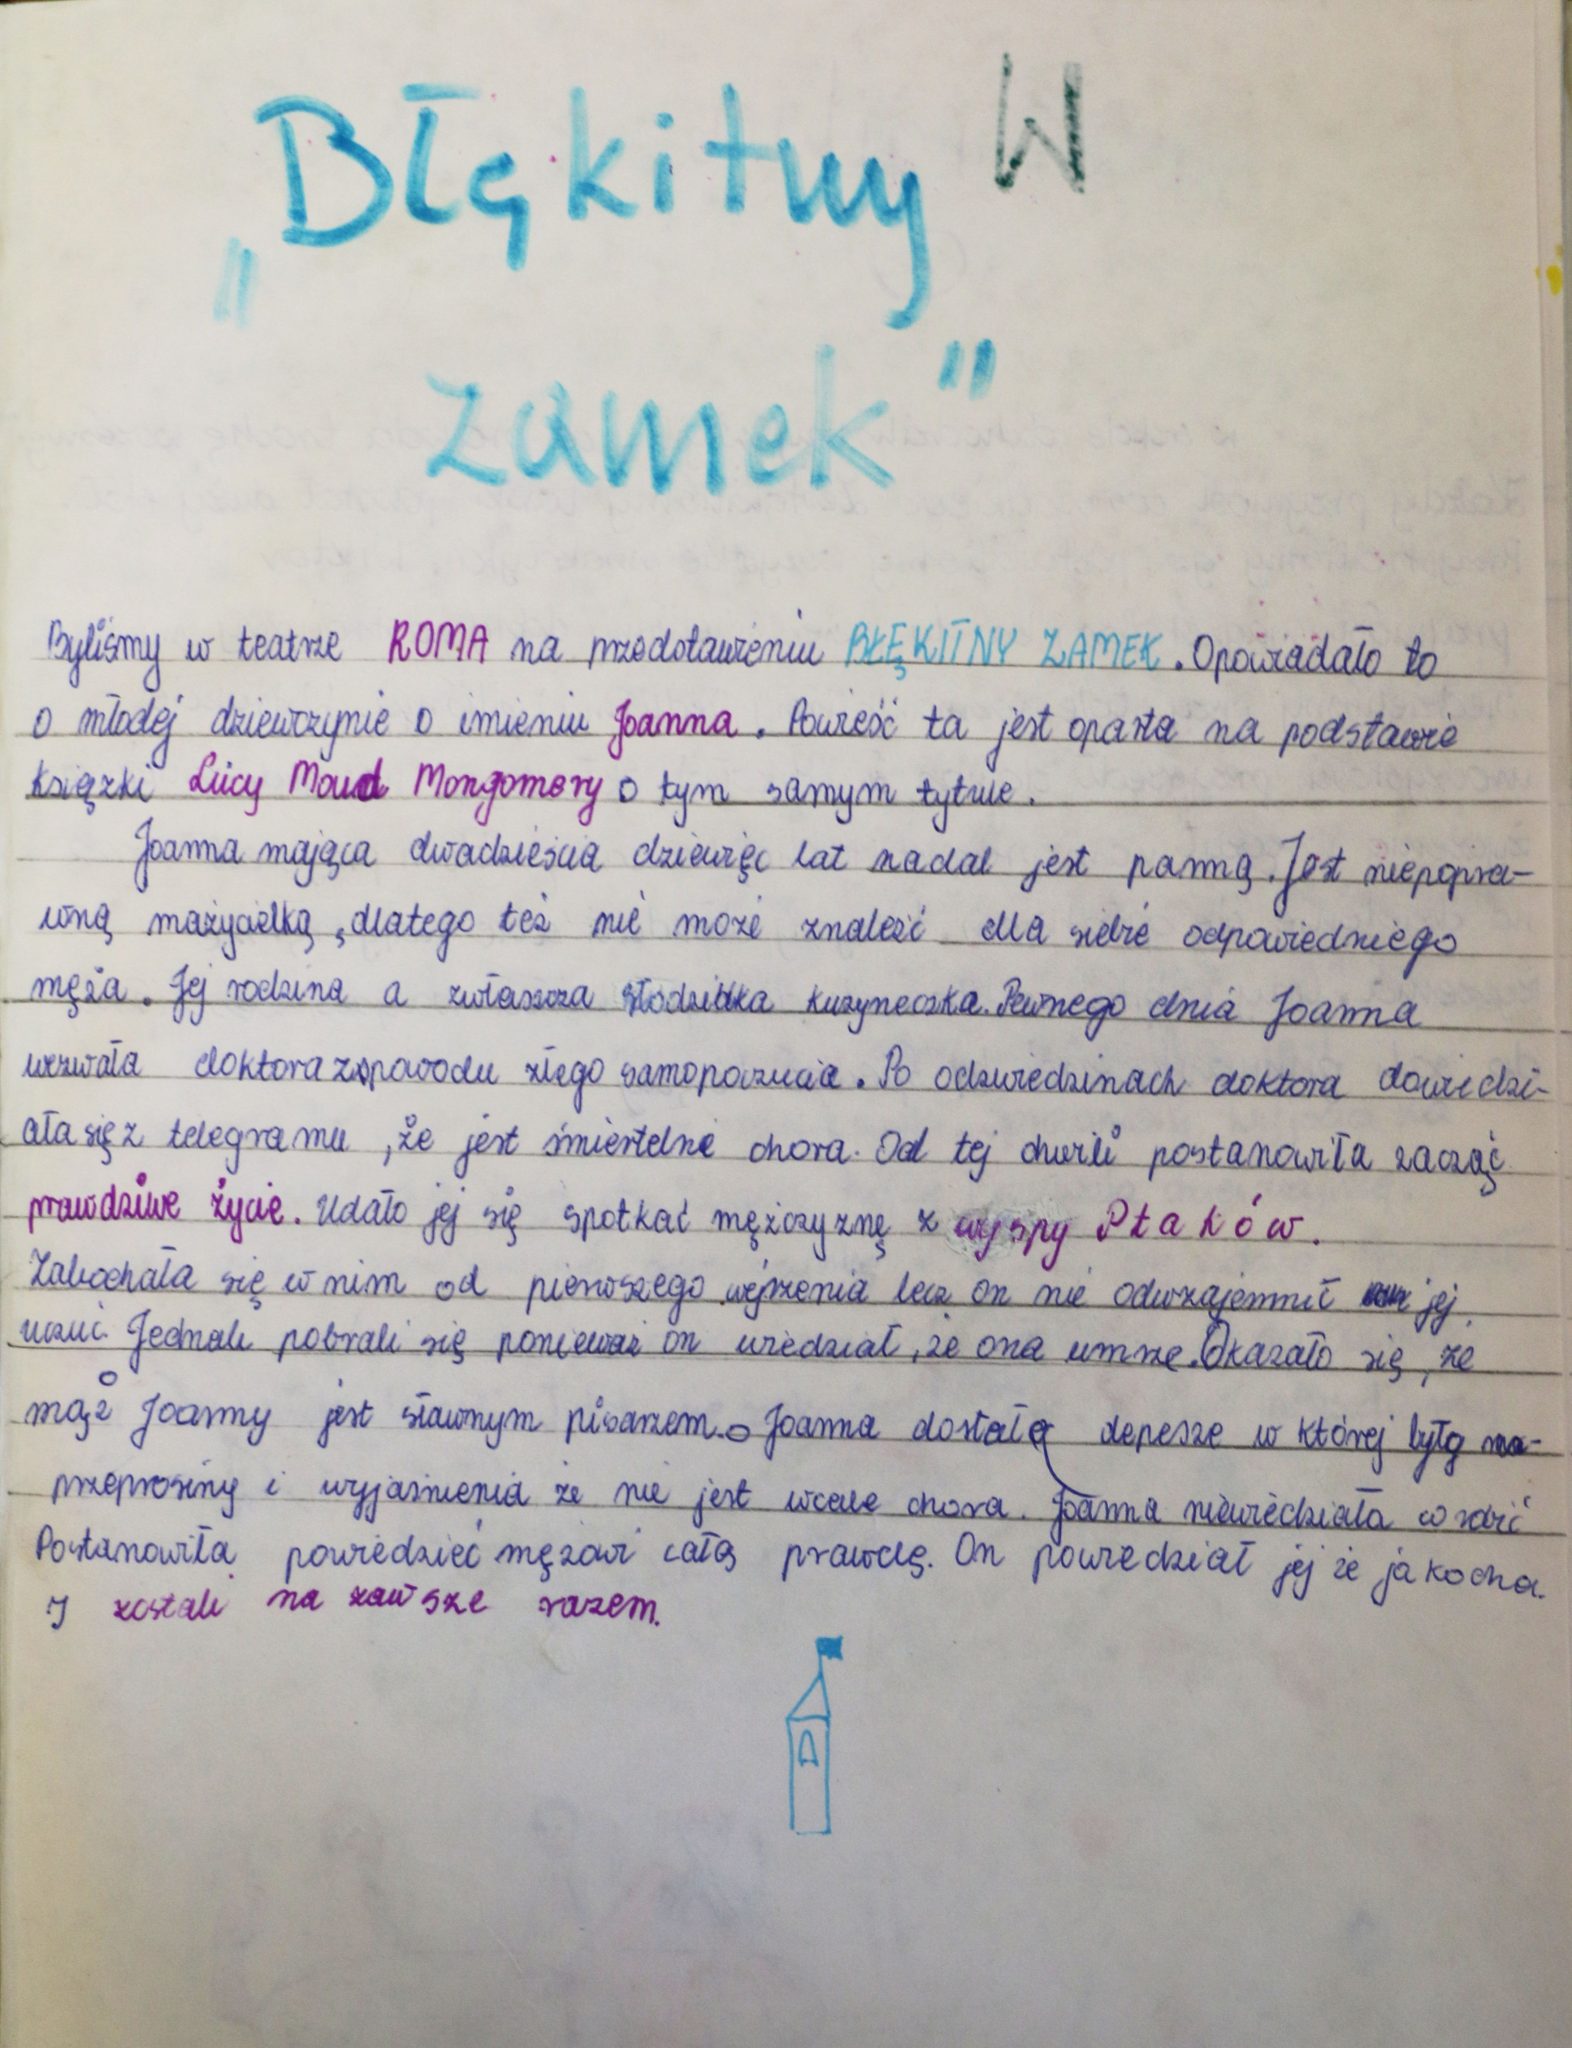 „Błękitny W
zamek"
Byliśmy w teatrze ROMA na przedstawieniu BŁĘKITNY ZAMEK. Opowiadało to
o młodej dziewczynie o imieniu Joanna. Powieść ta jest oparta na podstawie
książki Lucy Moud Mongomery o tym samym tytule.
Joanna mająca dwadzieścia dziewięc lat nadal jest panną. Jest niepopra-
wną mażycielką, dlatego też nie może znaleść dla siebie odpowiedniego
męża. Jej rodzina a zwłaszcza słodziutka kuzyneczka. Pewnego dnia Joanna
wezwała doktora z powodu złego samopoczucia. Po odzwiedzinach doktora dowiedzi-
ała się z telegramu, że jest śmiertelnie chora. Od tej chwili postanowiła zacząć
prawdziwe życie. Udało jej się spotkać mężczyznę z wyspy Ptaków.
Zakochała się w nim od pierwszego wejrzenia lecz on nie odwzajemnił jej
uczuć. Jednak pobrali się ponieważ on wiedział, że ona umrze. Okazało się, że
mąż Joanny jest sławnym pisarzem. Joanna dostała depesze w której były
przeprosiny i wyjaśnienia że nie jest wcale chora. Joanna niewiedziała co robić
Postanowiła powiedzieć mężowi całą prawdę. On powiedział jej że ja kocha.
I zostali na zawsze razem.